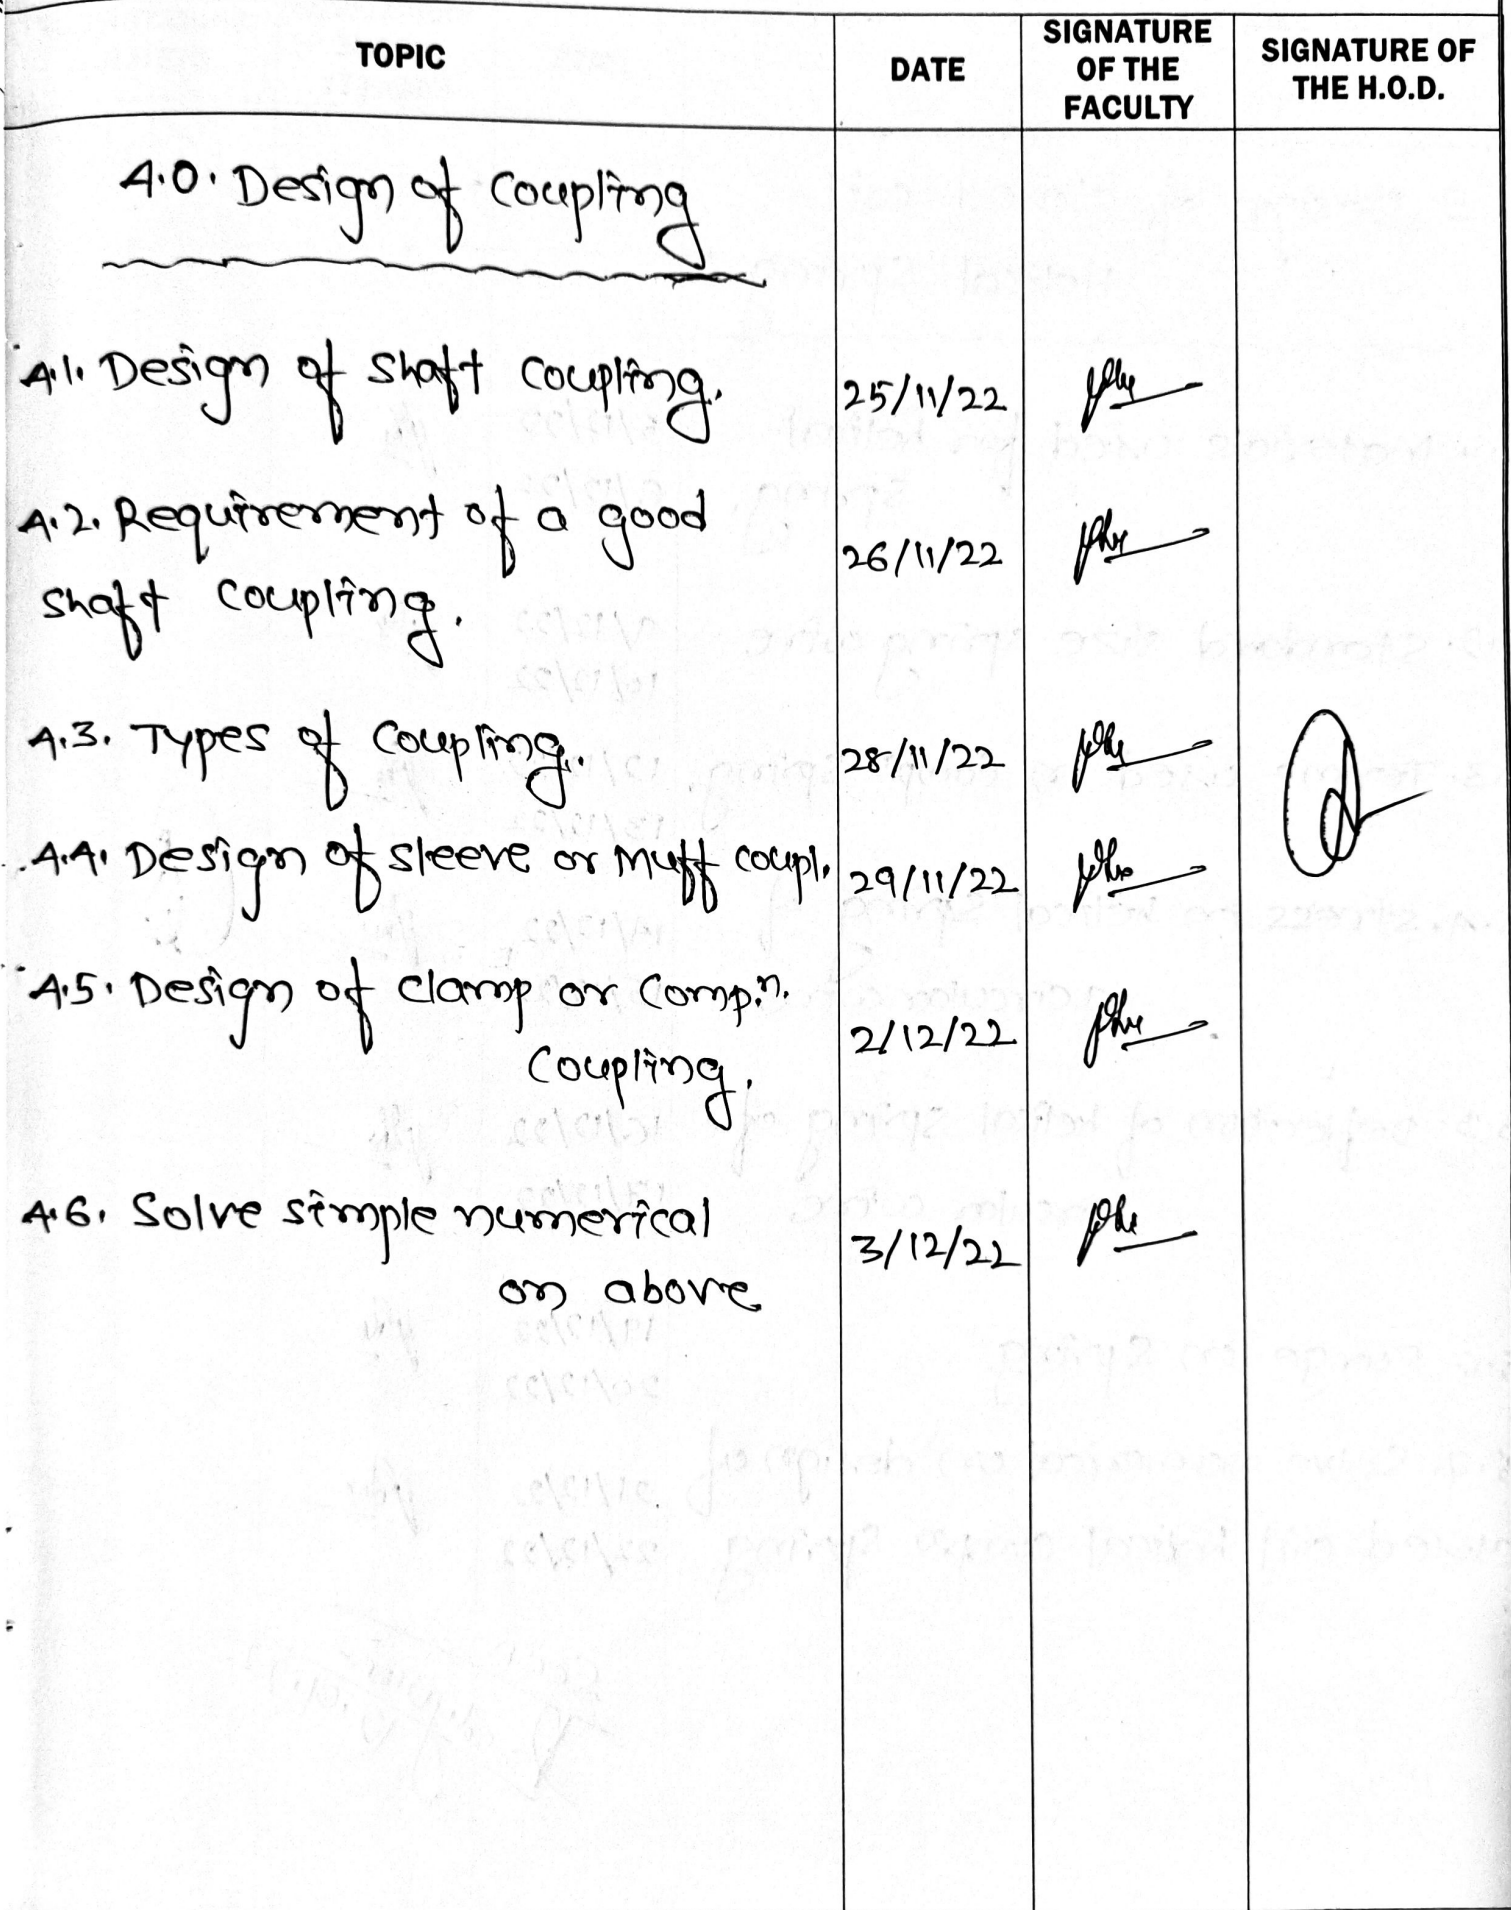 TOPIC
DATE
SIGNATURE
OF THE
FACULTY
SIGNATURE OF
THE H.O.D.
4.0. Design of Coupling
4.1. Design of Shaft Coupling.
25/11/22
4.2. Requirement of a good
shaft coupling.
26/11/22
4.3. Types of Coupling.
28/11/22
4.4. Design of sleeve or Muff coupl.
29/11/22
4.5. Design of clamp or Comp.n.
Coupling.
2/12/22
4.6. Solve simple numerical
on above
3/12/22